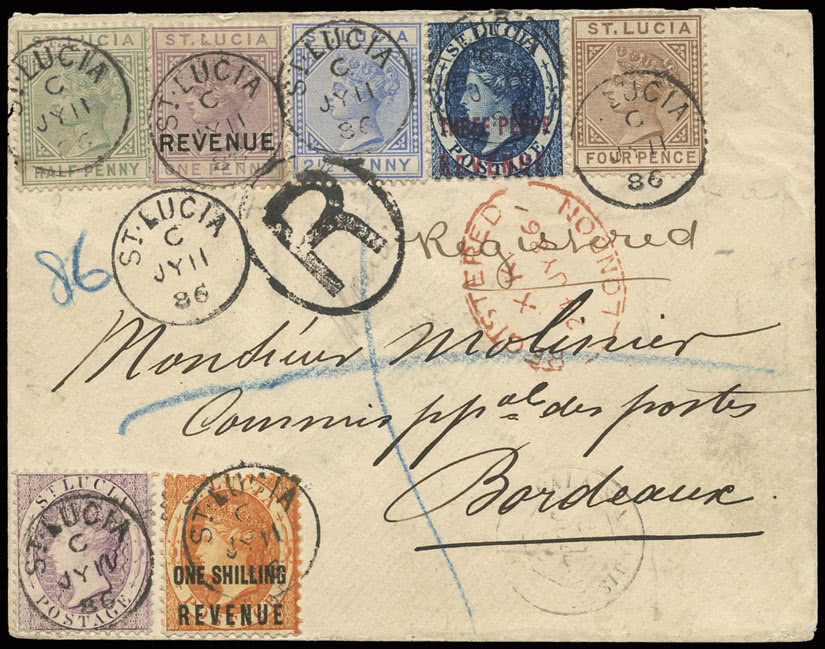 ST. LUCIA
HALF PENNY
ST. LUCIA
C
JY 11
86
ST. LUCIA
REVENUE
ONE PENNY
ST. LUCIA
C
JY 11
86
ST. LUCIA
2½ PENNY
ST. LUCIA
C
JY 11
86
ST. LUCIA
THREE PENCE
POSTAGE
REVENUE
ST. LUCIA
FOUR PENCE
ST. LUCIA
C
JY 11
86
ST. LUCIA
C
JY 11
86
R
86
REGISTERED
LONDON
X X
JY 86
Registered
Monsieur Molinier
Commis ppal des postes
Bordeaux.
ST. LUCIA
POSTAGE
ST. LUCIA
C
JY 11
86
ONE SHILLING
REVENUE
ST. LUCIA
C
JY 11